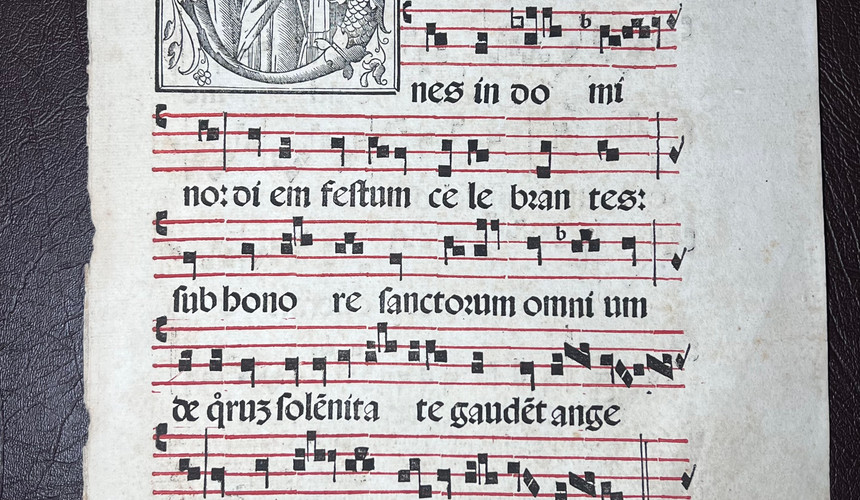 nes in do mi
no: di em feſtum ce le bran tes:
ſub hono re ſanctoꝛum omni um
de q̊ruꝫ ſolēnita te gaudēt ange